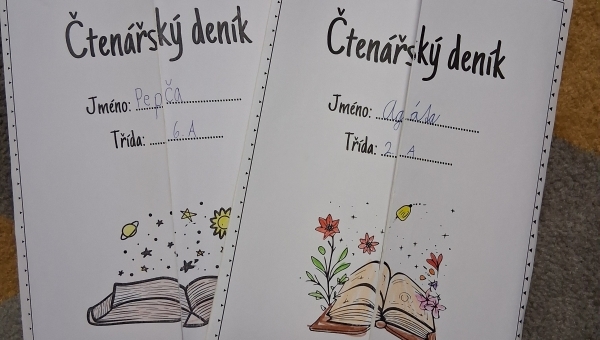 Čtenářský deník
Jméno: Pepča
Třída: 6. A
Čtenářský deník
Jméno: Agáta
Třída: 2. A